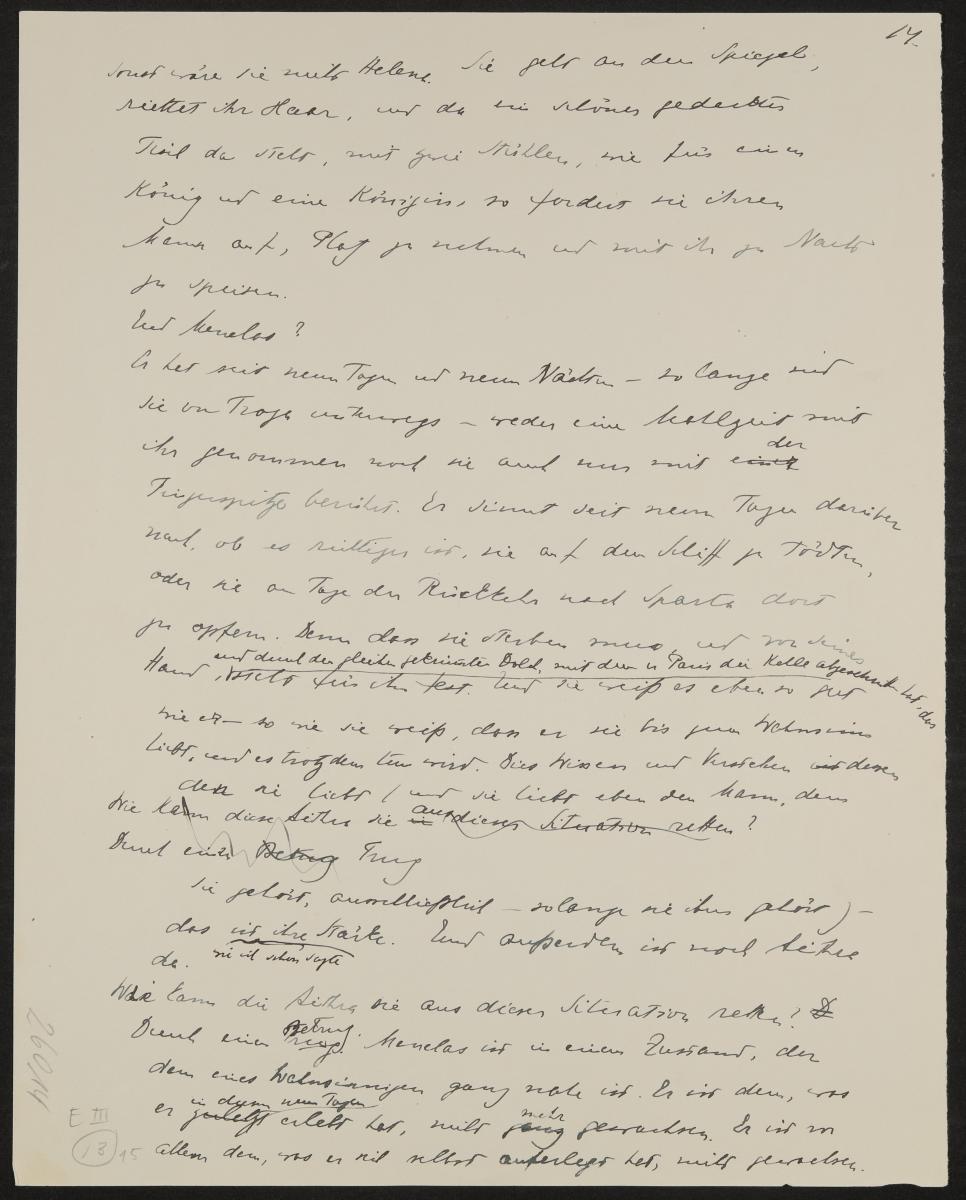 14.
sonst wäre sie nicht Helena. Sie geht an den Spiegel,
richtet ihr Haar, und da ein schönes gedecktes
Tisch da steht, mit zwei Stühlen, wie für einen
König und eine Königin, so fordert sie ihren
Mann auf, Platz zu nehmen und mit ihr zu Nacht
zu speisen.
Und Menelas?
Er hat seit neun Tagen und neun Nächten – so lange sind
sie von Troja unterwegs – weder eine Mahlzeit mit
der
ihr genommen noch sie auch nur mit einer
Fingerspitze berührt. Er sinnt seit neun Tagen darüber
nach, ob es richtiger ist, sie auf dem Schiff zu tödten,
oder sie am Tage der Rückkehr nach Sparta dort
zu opfern. Denn dass sie sterben muss und von seiner
und durch den gleichen gekrümmten Dolch, mit dem er Paris die Kehle abgeschnitten hat, das
Hand, steht für ihn fest. Und sie weiß es eben so gut
wie er – so wie sie weiß, dass er sie bis zum Wahnsinn
liebt, und es trotzdem tun wird. Dies Wissen und Verstehen ist dessen
den sie liebt / und sie liebt eben den Mann, dem
Wie kann diese Aithra sie in aus dieser Situation retten?
Durch einen Betrug Trug
sie gehört, ausschließlich – solange sie ihm gehört) –
das ist ihre Stärke. Und außerdem ist noch Aithra
da. wie ich schon sagte
Wie kann die Aithra sie aus dieser Situation retten? D
Betrug.
Durch einen Trug. Menelas ist in einem Zustand, der
dem eines Wahnsinnigen ganz nahe ist. Er ist dem, was
in diesen neun Tagen
er zuletzt erlebt hat, nicht ganz mehr gewachsen. Er ist vor
allem dem, was er sich selbst auferlegt hat, nicht gewachsen.
26014
E III
13 15